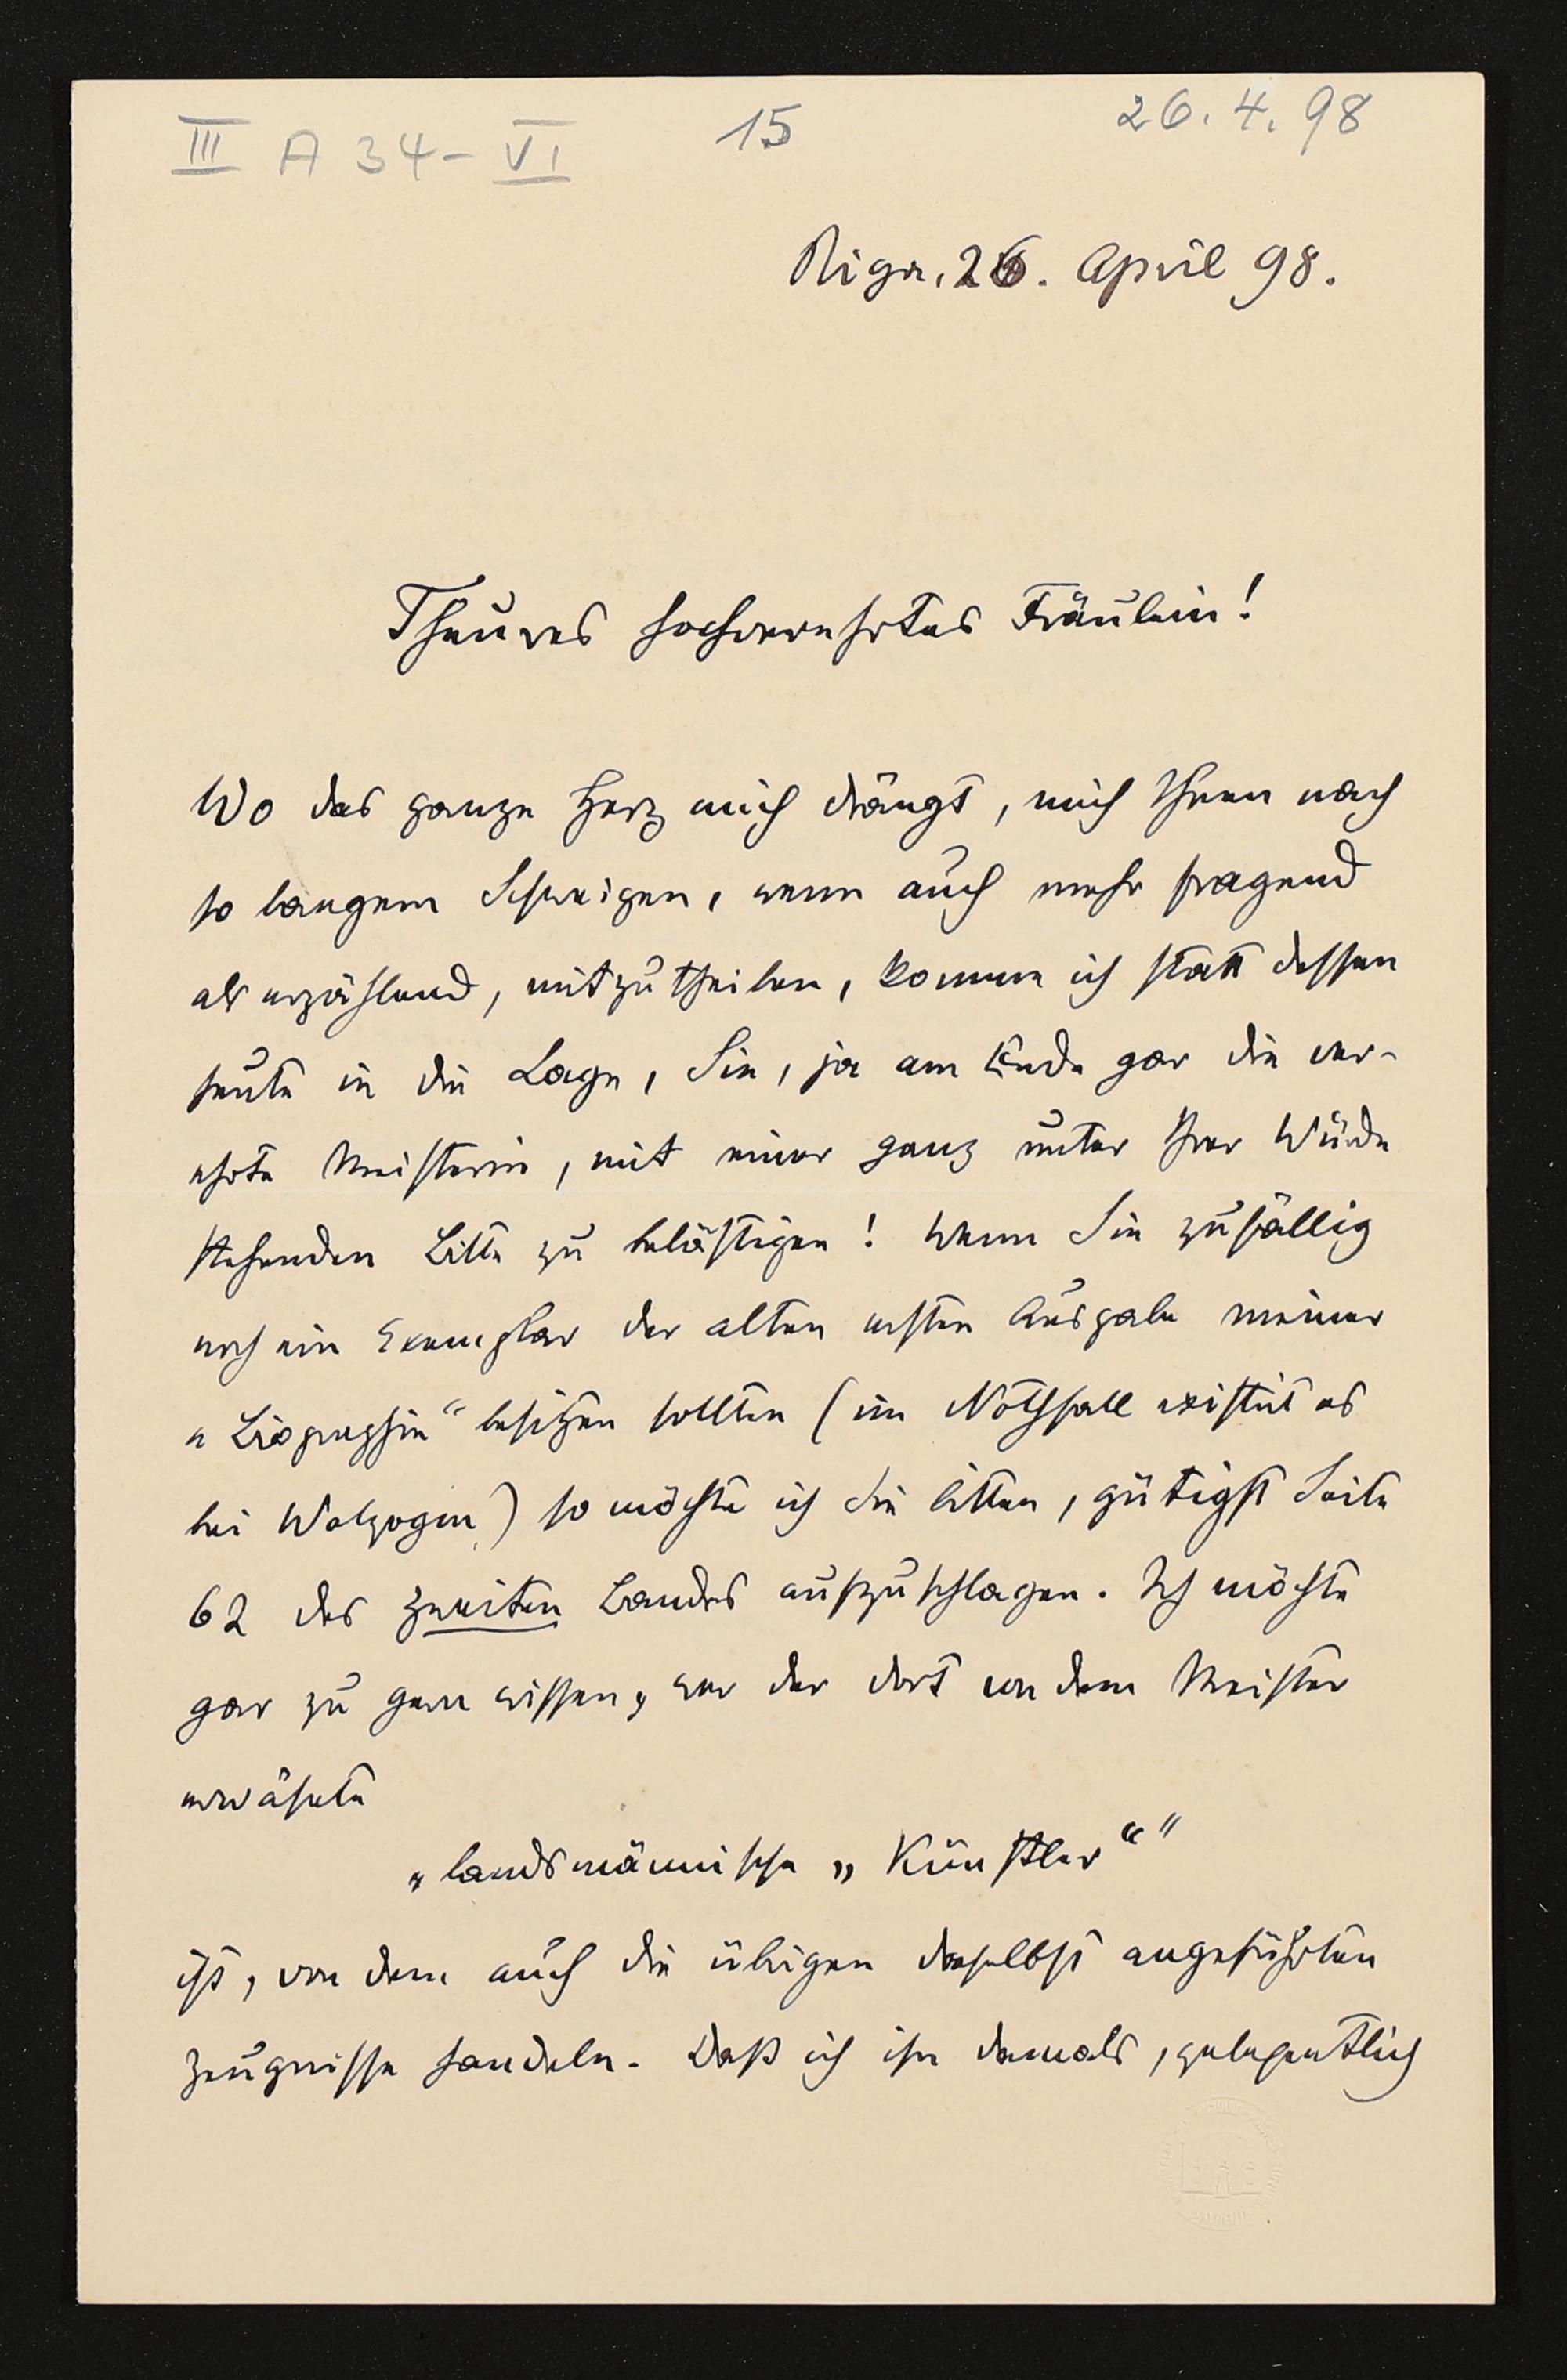 III A 34-VI 15 26.4.98
Riga, 26. April 98.
Theures hochverehrtes Fräulein!
Wo das ganze Herz mich drängt, mich Ihnen nach
so langem Schweigen, wenn auch mehr fragend
als erzählend, mitzutheilen, komme ich statt dessen
heute in die Lage, Sie, ja am Ende gar die ver-
ehrte Meisterin, mit einer ganz unter Ihrer Würde
stehenden Bitte zu belästigen! Wenn Sie zufällig
noch ein Exemplar der alten ersten Ausgabe meiner
„Biographie“ besitzen sollten (im Nothfall existirt es
bei Wolzogen) so möchte ich Sie bitten, gütigst Seite
62 des zweiten Bandes aufzuschlagen. Ich möchte
gar zu gern wissen, wer der dort von dem Meister
erwähnte
„landsmännische „Künstler“"
ist, von dem auch die übrigen daselbst angeführten
Zeugnisse handeln. Daß ich ihn damals, gelegentlich